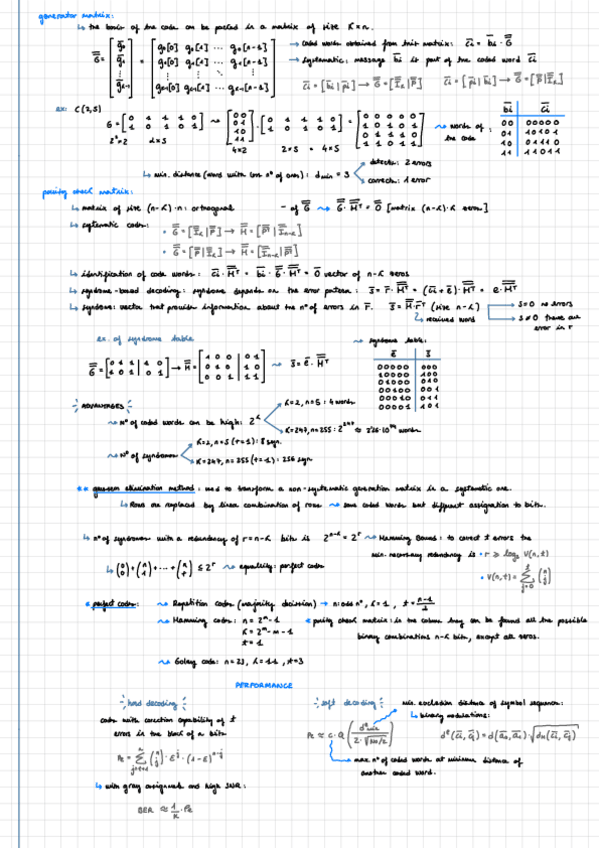 generator matrix:
↳ the basis of the code can be packed in a matrix of size K×n.
G = [g0 g1 ⋮ gK-1] = [g0[0] g0[1] ... g0[n-1] g1[0] g1[1] ... g1[n-1] ⋮ gK-1[0] gK-1[1] ... gK-1[n-1]]
→ Coded word obtained from this matrix: ci = bi · G
→ systematic: message bi is part of the coded word ci
ci = [bi | pi] → G = [IK | P]   ci = [pi | bi] → G = [P | IK]
ex: C(2,5)
2^K×2   2×5   4×2   2×5 = 4×5
~ words of the code
bi ci
00 00000
01 10101
10 01110
11 11011
↳ min. distance (word with low n° of ones): dmin = 3
detects: 2 errors
corrects: 1 error
parity check matrix:
↳ matrix of size (n-K)·n: orthogonal - of G ~ G·H^T = 0 [matrix (n-K)·K zeros]
↳ systematic codes:
• G = [IK | P] → H = [P^T | In-K]
• G = [P | IK] → H = [In-K | P^T]
↳ identification of code words: ci · H^T = bi · G · H^T = 0 vector of n-K zeros
↳ syndrome-based decoding: syndrome depends on the error pattern: s = r · H^T = (ci + e) · H^T = e · H^T
↳ syndrome: vector that provides information about the n° of errors in r. s = H·r^T (size n-K)
↳ received word
s=0 no errors
s≠0 there are error in r
ex. of syndrome table
~ syndrome table:
~ s = e · H^T
e s
00000 000
ADVANTAGES
~ N° of coded words can be high: 2^K
K=2, n=5: 4 words
~ N° of syndromes
K=2, n=5 (r=1): 8 syn.
K=247, n=255 (r=1): 256 syn
** gaussian elimination method: used to transform a non-systematic generation matrix in a systematic one.
↳ Rows are replaced by linear combination of rows ~ same coded words but different assignation to bits.
↳ n° of syndromes with a redundancy of r=n-K bits is 2^(n-K) = 2^r ~ Hamming Bound: to correct t errors the
min. necessary redundancy is • r ≥ log2 V(n,t)
• V(n,t) = Σ(j=0..t) (n j)
↳ (n 0) + (n 1) + ... + (n t) ≤ 2^r ~ equality: perfect codes
* perfect codes:
~ Repetition codes (majority decision) → n: odd n°, K=1, t = (n-1)/2
~ Hamming codes: n = 2^m - 1
K = 2^m - m - 1
t = 1
* parity check matrix: in the colums they can be found all the possible
binary combinations n-K bits, except all zeros.
~ Golay code: n=23, K=11, t=3
PERFORMANCE
hard decoding
codes with correction capability of t
errors in the block of n bits
Pe = Σ(j=t+1..n) (n j) · ε^j · (1-ε)^(n-j)
↳ with gray assignment and high SNR:
BER ≈ 1/K · Pe
soft decoding
min. euclidean distance of symbol sequence:
↳ binary modulations:
max n° of coded words at minimum distance of
another coded word.